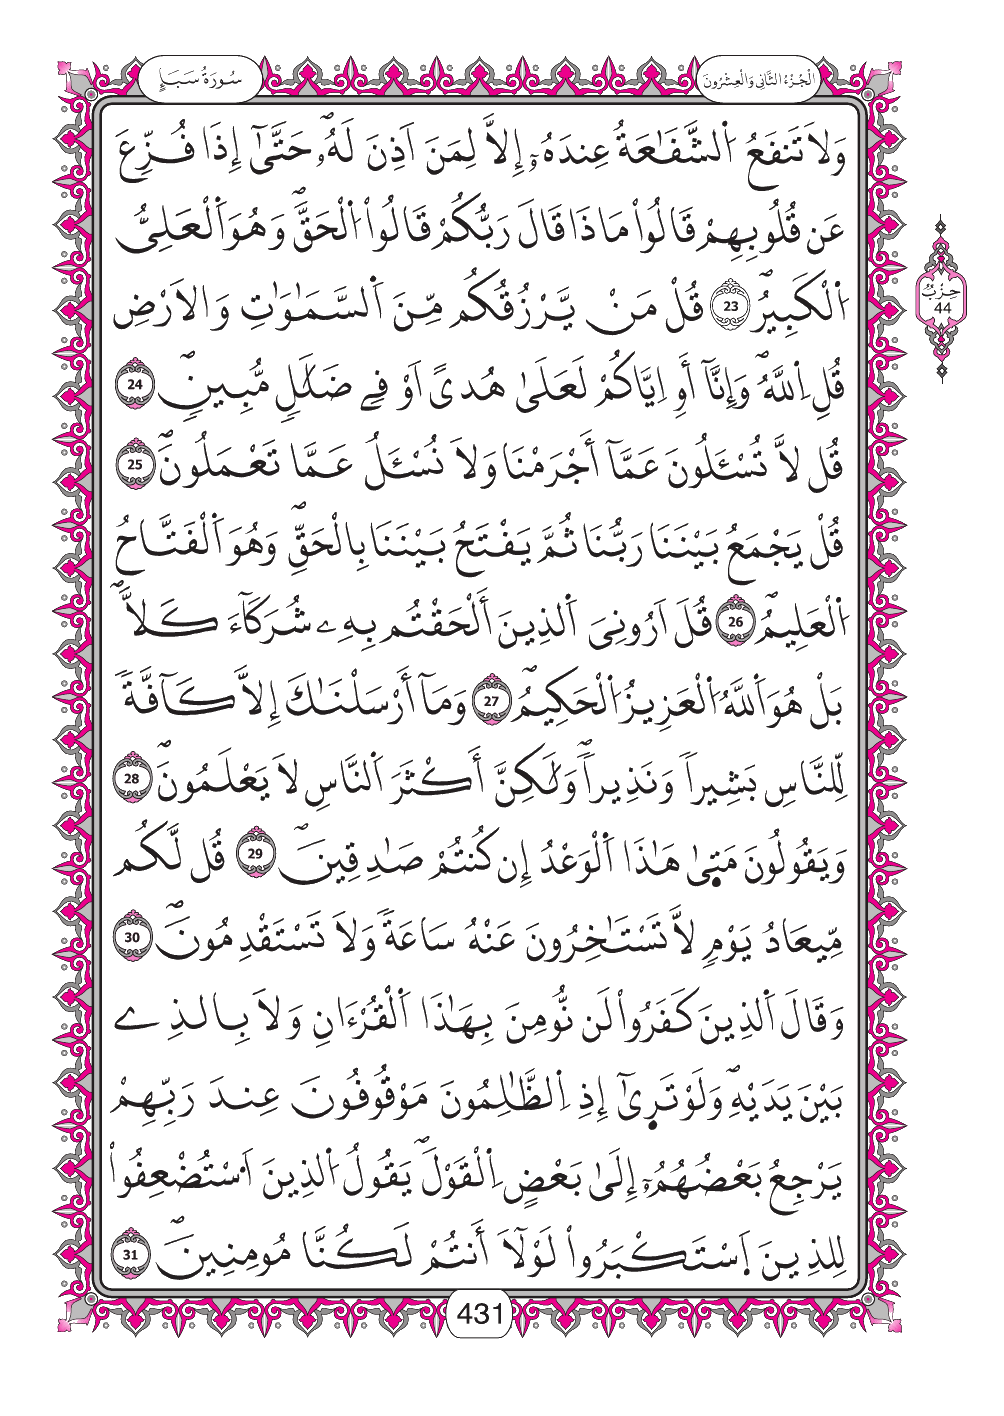 سُورَةُ سَبَإٍ
الْجُزْءُ الثَّانِي وَالْعِشْرُونَ
وَلَا تَنفَعُ اُ۬لشَّفَٰعَةُ عِندَهُۥٓ إِلَّا لِمَنَ اَذِنَ لَهُۥۖ حَتَّىٰٓ إِذَا فُزِّعَ
عَن قُلُوبِهِمْ قَالُواْ مَاذَا قَالَ رَبُّكُمْ قَالُواْ اُ۬لْحَقَّۖ وَهُوَ اَ۬لْعَلِيُّ
اُ۬لْكَبِيرُۖ 23 قُلْ مَنْ يَّرْزُقُكُم مِّنَ اَ۬لسَّمَٰوَٰتِ وَالَارْضِ
قُلِ اِ۬للَّهُۖ وَإِنَّآ أَوِ اِيَّاكُمْ لَعَلَىٰ هُدىً اَوْ فِے ضَلَٰلٖ مُّبِينٖۖ 24
قُل لَّا تُسْـَٔلُونَ عَمَّآ أَجْرَمْنَا وَلَا نُسْـَٔلُ عَمَّا تَعْمَلُونَۖ 25
قُلْ يَجْمَعُ بَيْنَنَا رَبُّنَا ثُمَّ يَفْتَحُ بَيْنَنَا بِالْحَقِّۖ وَهُوَ اَ۬لْفَتَّاحُ
اُ۬لْعَلِيمُۖ 26 قُلَ اَرُونِيَ اَ۬لذِينَ أَلْحَقْتُم بِهِۦ شُرَكَآءَ كَلَّاۖ
بَلْ هُوَ اَ۬للَّهُ اُ۬لْعَزِيزُ اُ۬لْحَكِيمُۖ 27 وَمَآ أَرْسَلْنَٰكَ إِلَّا كَآفَّةٗ
لِّلنَّاسِ بَشِيراٗ وَنَذِيراٗۖ وَلَٰكِنَّ أَكْثَرَ اَ۬لنَّاسِ لَا يَعْلَمُونَۖ 28
وَيَقُولُونَ مَتَىٰ هَٰذَا اَ۬لْوَعْدُ إِن كُنتُمْ صَٰدِقِينَۖ 29 قُل لَّكُم
مِّيعَادُ يَوْمٖ لَّا تَسْتَـٰٔخِرُونَ عَنْهُ سَاعَةٗ وَلَا تَسْتَقْدِمُونَۖ 30
وَقَالَ اَ۬لذِينَ كَفَرُواْ لَن نُّومِنَ بِهَٰذَا اَ۬لْقُرْءَانِ وَلَا بِالذِے
بَيْنَ يَدَيْهِۖ وَلَوْ تَرَىٰٓ إِذِ اِ۬لظَّٰلِمُونَ مَوْقُوفُونَ عِندَ رَبِّهِمْ
يَرْجِعُ بَعْضُهُمُۥٓ إِلَىٰ بَعْضٍ اِ۬لْقَوْلَۖ يَقُولُ اُ۬لذِينَ اَ۟سْتُضْعِفُواْ
لِلذِينَ اَ۪سْتَكْبَرُواْ لَوْلَآ أَنتُمْ لَكُنَّا مُومِنِينَۖ 31
حِزْبُ
44
431